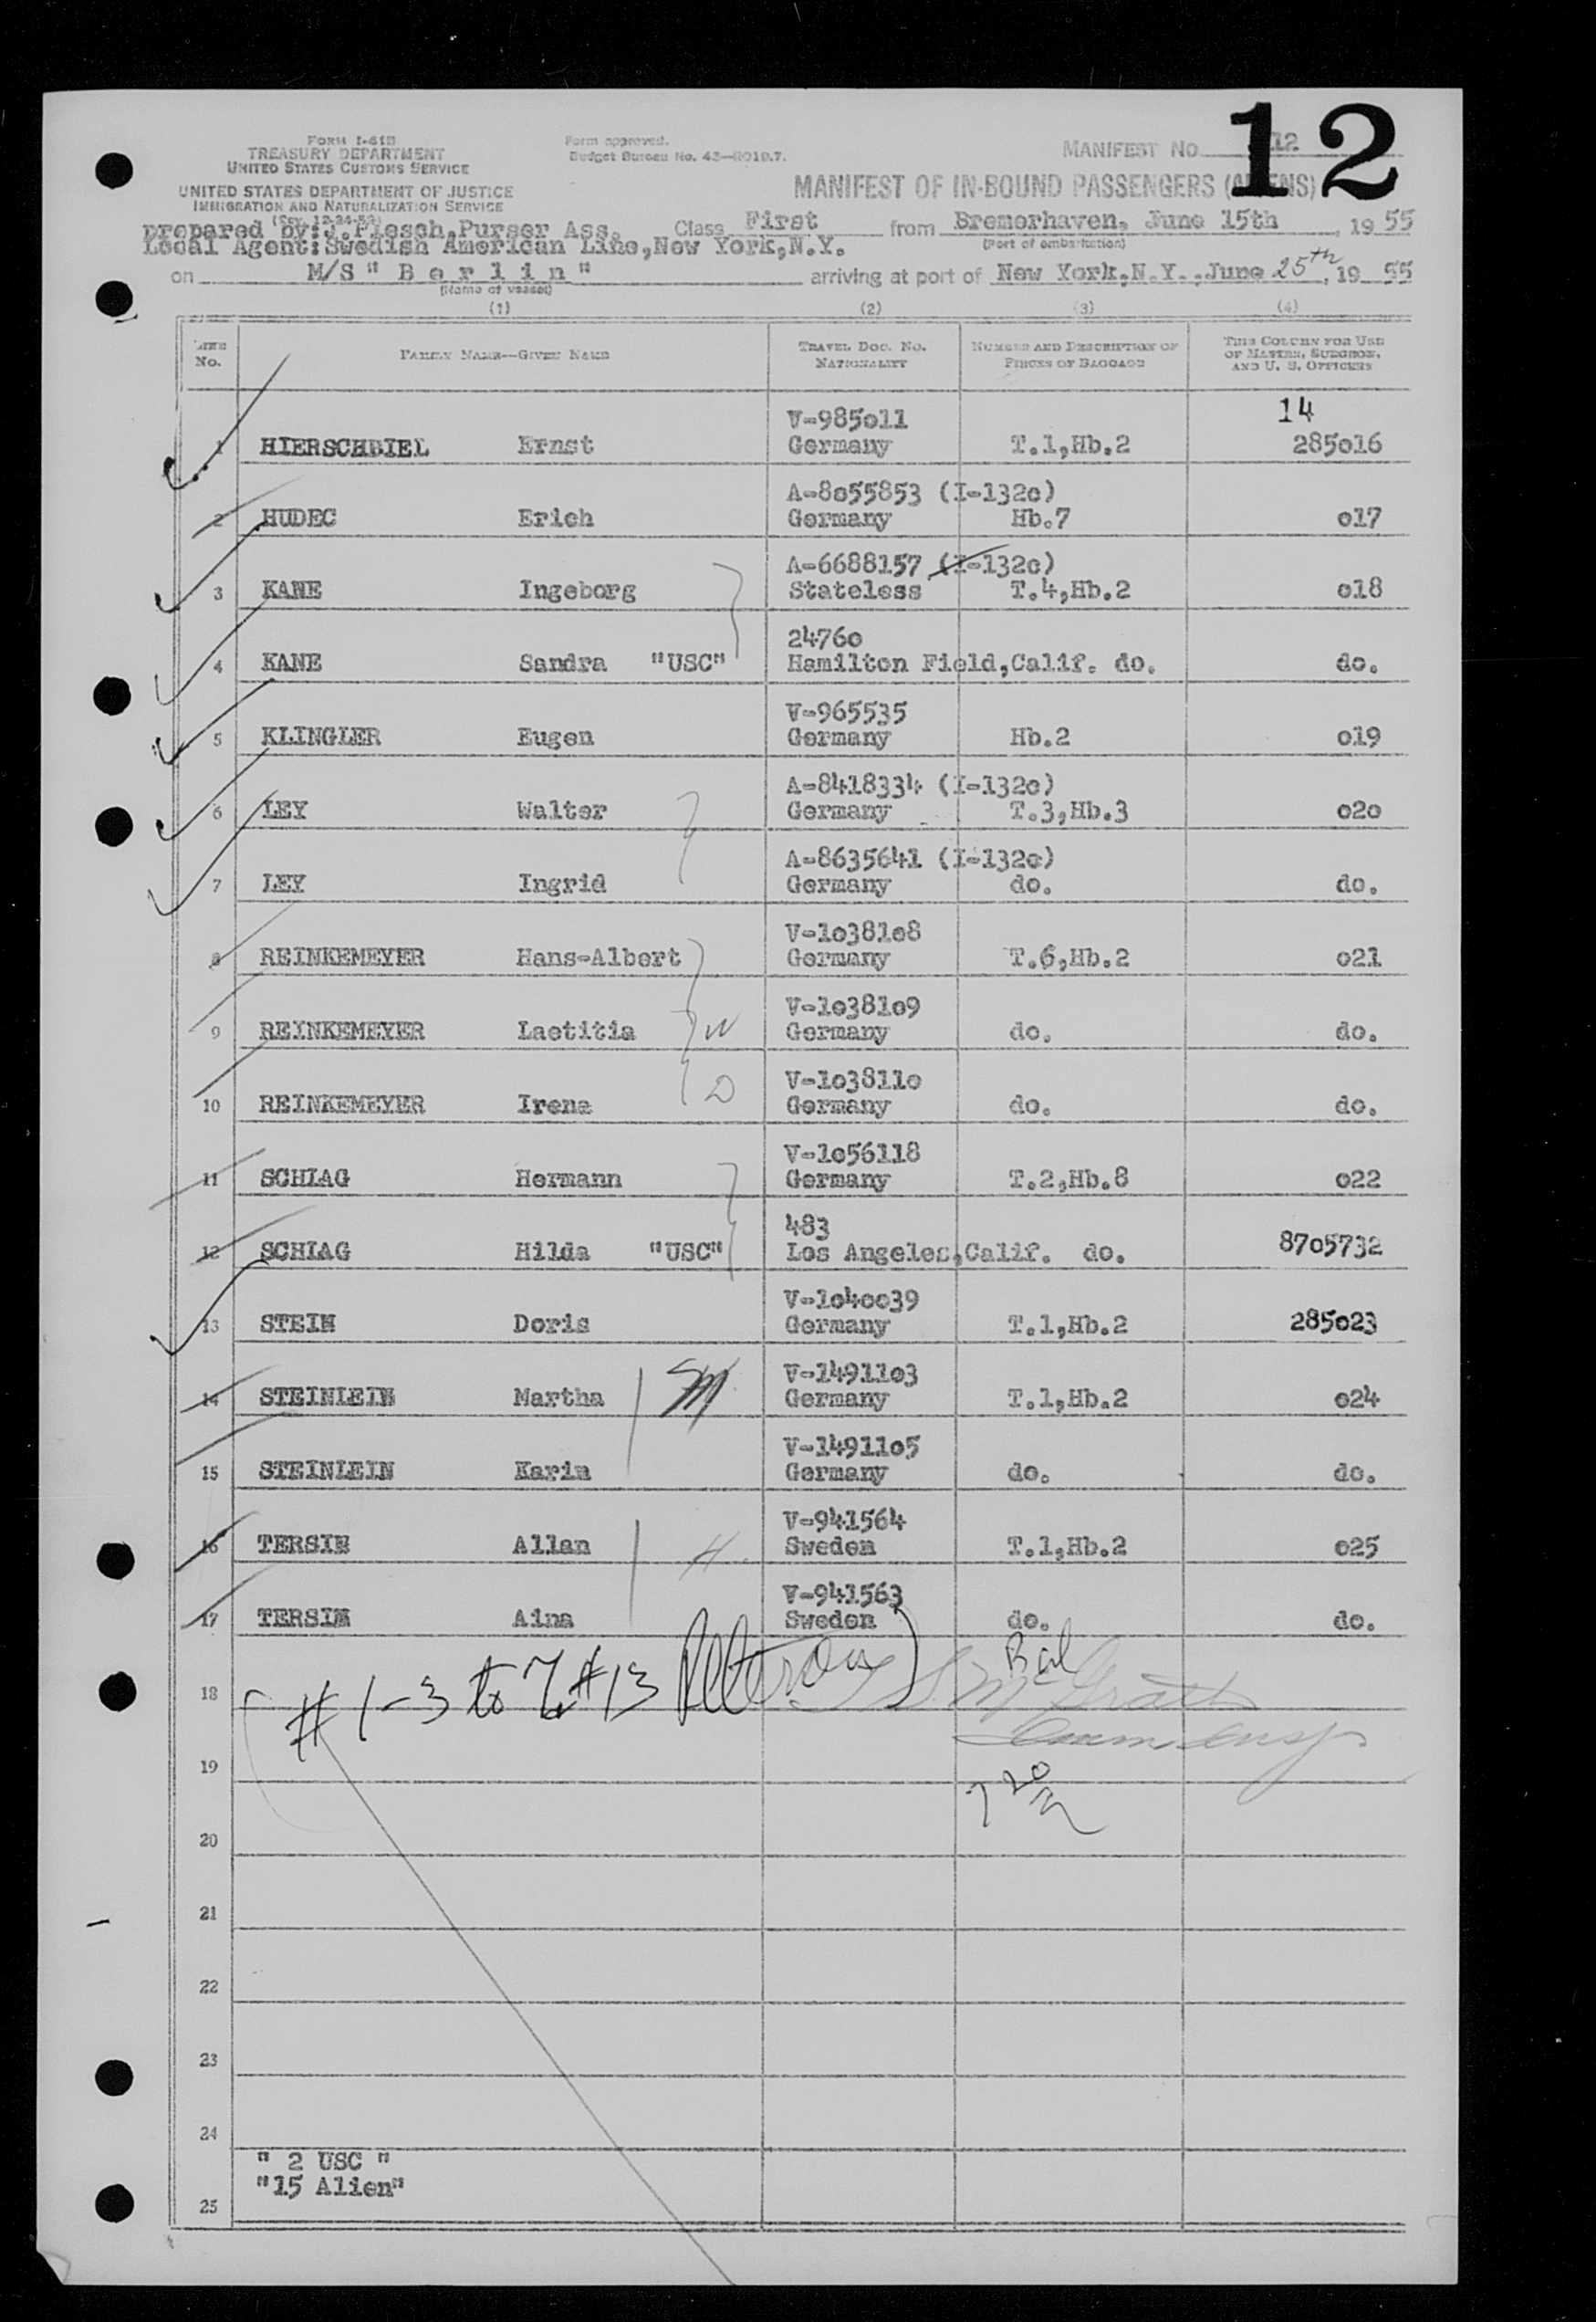 12
FORM I-418
TREASURY DEPARTMENT
UNITED STATES CUSTOMS SERVICE
UNITED STATES DEPARTMENT OF JUSTICE
IMMIGRATION AND NATURALIZATION SERVICE
Form approved.
Budget Bureau No. 43—R019.7.
MANIFEST No. 12
MANIFEST OF IN-BOUND PASSENGERS (ALIENS)
prepared by:J.Plesch,Purser Ass. Class First from Bremerhaven, June 15th, 1955
Local Agent:Swedish American Line,New York,N.Y. (Port of embarkation)
on M/S " B e r l i n " arriving at port of New York,N.Y.,June 25th, 1955
(Name of vessel)
(1) (2) (3) (4)
LINE No. FAMILY NAME—GIVEN NAME TRAVEL DOC. NO. NATIONALITY NUMBER AND DESCRIPTION OF PIECES OF BAGGAGE THIS COLUMN FOR USE OF MASTER, SURGEON, AND U. S. OFFICERS
V-985011 14
1 HIERSCHBIEL Ernst Germany T.1,Hb.2 285016
A-8055853 (I-132c)
2 HUDEC Erich Germany Hb.7 017
A-6688157 (I-132c)
3 KANE Ingeborg Stateless T.4,Hb.2 018
24760
4 KANE Sandra "USC" Hamilton Field,Calif. do. do.
V-965535
5 KLINGLER Eugen Germany Hb.2 019
A-8418334 (I-132c)
6 LEY Walter Germany T.3,Hb.3 020
A-8635641 (I-132c)
7 LEY Ingrid Germany do. do.
V-1038108
8 REINKEMEYER Hans-Albert Germany T.6,Hb.2 021
V-1038109
9 REINKEMEYER Laetitia W Germany do. do.
V-1038110
10 REINKEMEYER Irena D Germany do. do.
V-1056118
11 SCHLAG Hermann Germany T.2,Hb.8 022
483
12 SCHLAG Hilda "USC" Los Angeles,Calif. do. 8705732
V-1040039
13 STEIN Doris Germany T.1,Hb.2 285023
V-1491103
14 STEINLEIN Martha Germany T.1,Hb.2 024
V-1491105
15 STEINLEIN Karin Germany do. do.
V-941564
16 TERSIN Allan H. Sweden T.1,Hb.2 025
V-941563
17 TERSIN Aina Sweden do. do.
18 # 1-3 to 7 #13 Bal McGrath
19
20
21
22
23
24
" 2 USC "
"15 Alien"
25